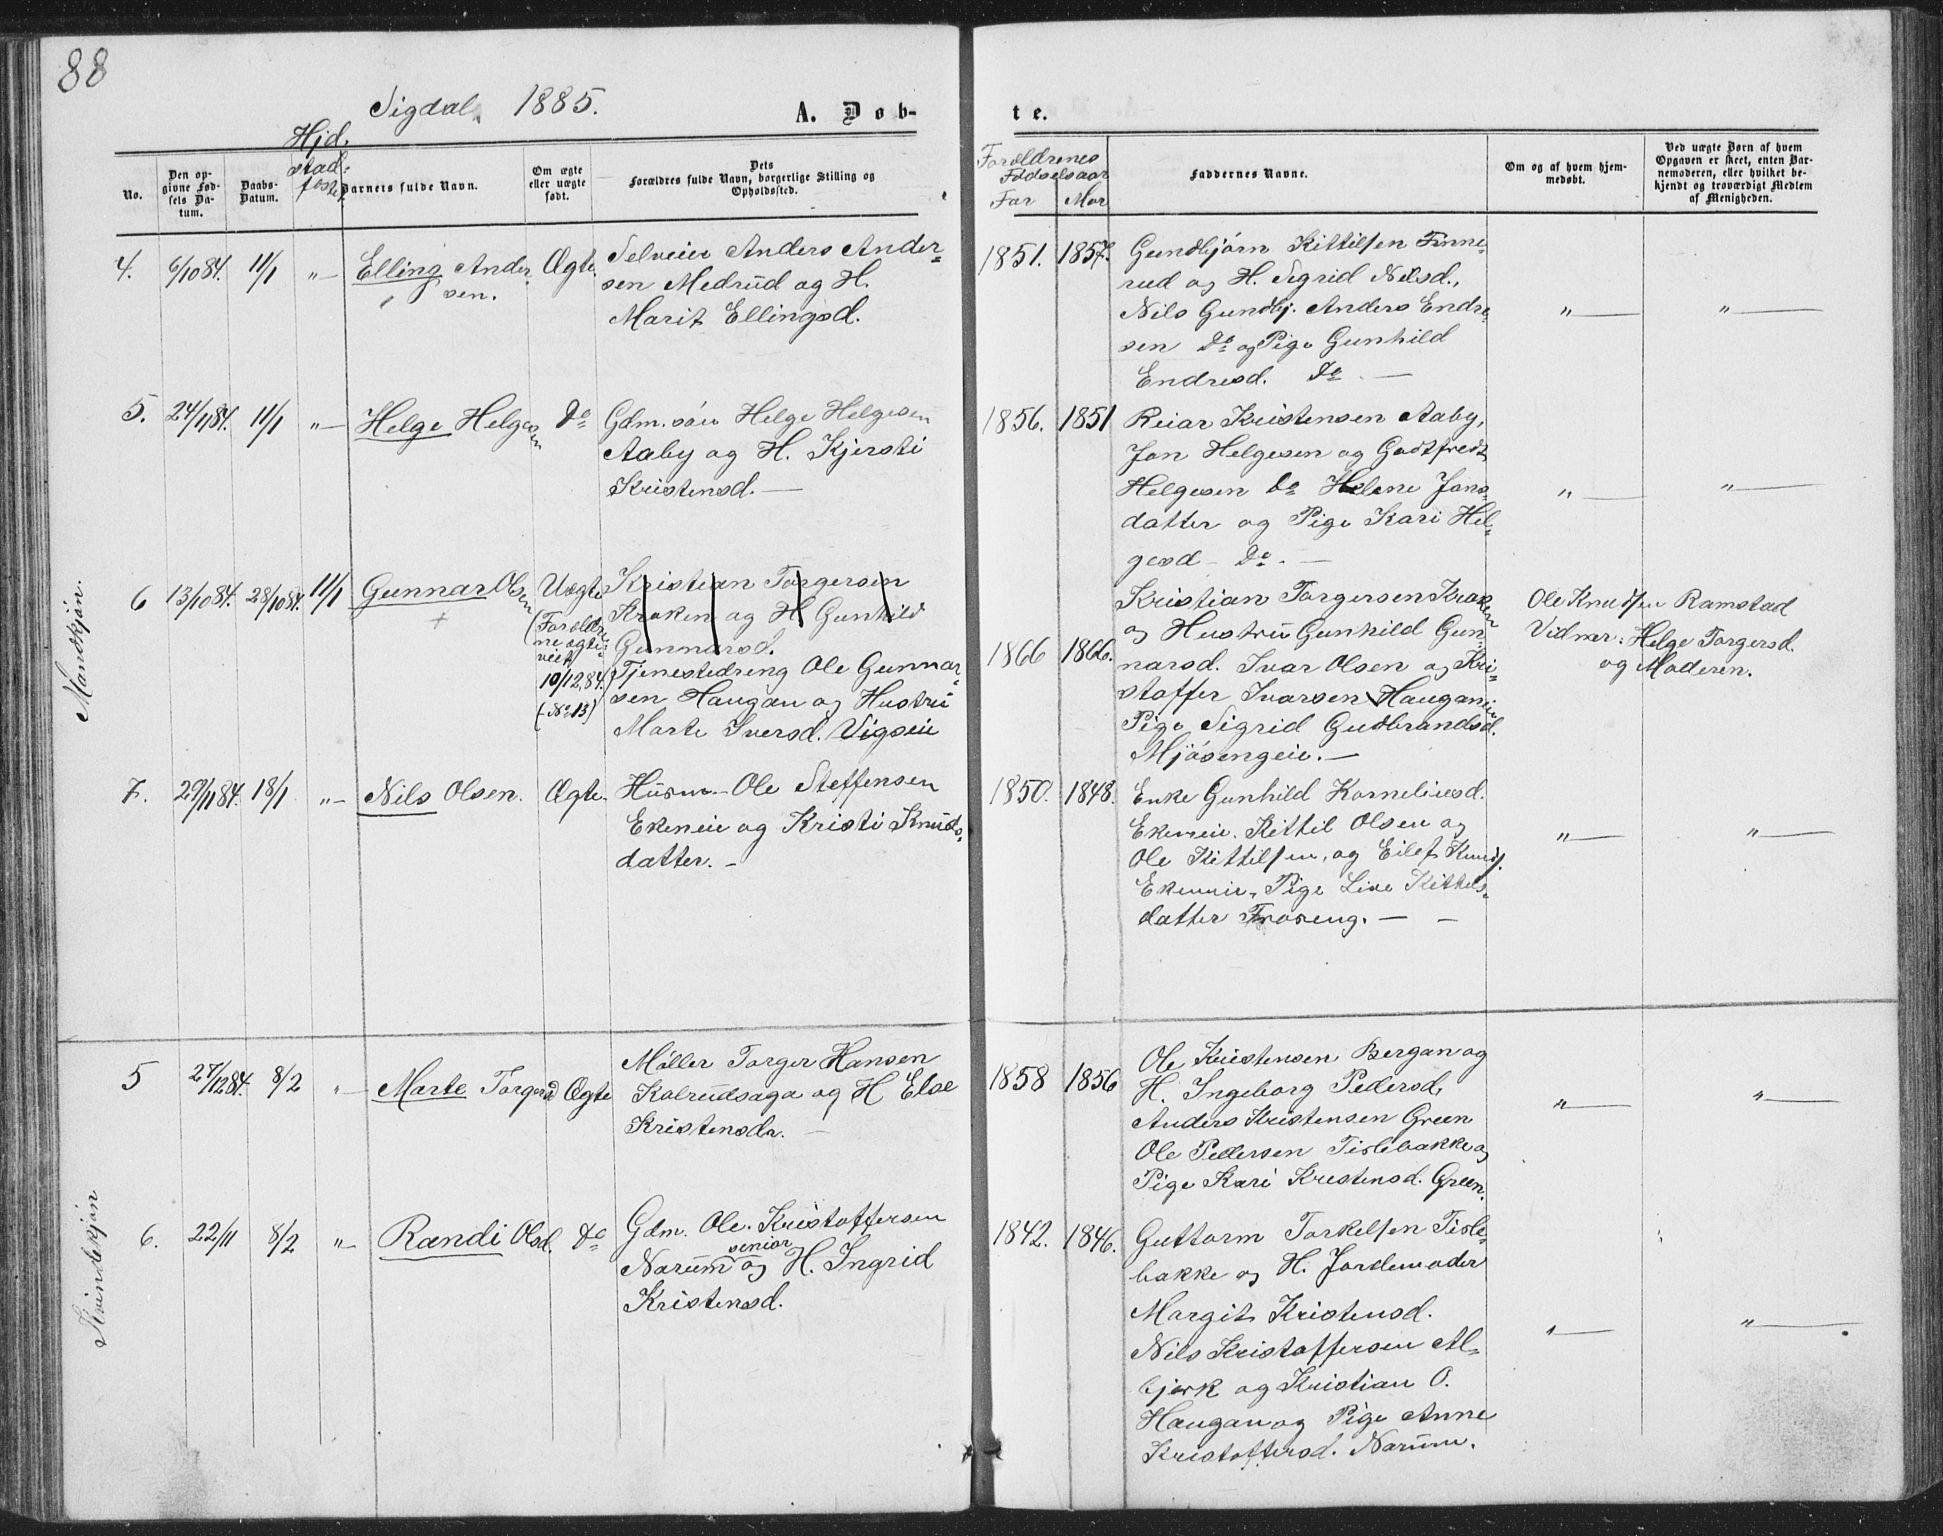 88
Sigdal 1885.
A. Døb-
te.
Hjd.
stad-
fæst.
No.
Den op-
givne Fød-
sels Da-
tum.
Daabs-
Datum.
Barnets fulde Navn.
Om ægte
eller uægte
født.
Dets
Forældres fulde Navn, borgerlige Stilling og
Opholdssted.
Forældrenes
Fødselsaar
Far Mor
Faddernes Navne.
Om og af hvem hjem-
medøbt.
Ved uægte Børn af hvem
Opgaven er skeet, enten Bar-
nemoderen, eller hvilket be-
kjendt og troværdigt Medlem
af Menigheden.
Mandkjøn.
4. 6/10 84. 11/1 "— Elling Ander
sen.
Ægte.
Selveier Anders Ander-
sen Medrud og H.
Marit Ellingsd.
1851. 1857.
Gundbjørn Kittilsen Finne-
rud og H. Sigrid Nilsd.,
Nils Gundbj. Anders Endre-
sen Do og Pige Gunhild
Endresd. Do —
"— "—
5. 24/11 84. 11/1 "— Helge Helgesen
Do
Gdm. søn Helge Helgesen
Aaby og H. Kjersti
Kristensd. —
1856. 1851
Reiar Kristensen Aaby,
Jon Helgesen og Godtfredt
Helgesen Do Helene Jons-
datter og Pige Kari Hel-
gesd - Do. —
"— "—
6 13/10 84. 28/10 84. 11/1 Gunnar Olsen
+
Uægte
(Forældre
ne ægte-
viet
10/12,84.
(-No 13)
Kristian Torgersen
Kroken og H Gunhild
Gunnarsd.
Tjenestedreng Ole Gunnar-
sen Haugan og Hustru
Marte Iversd. Vigseie
1866 1866.
Kristian Torgersen Kroken
og Hustru Gunhild Gun-
narsd. Ivar Olsen og Kri-
stoffer Ivarsen Hauganeie
Pige Sigrid Gudbrandsd.
Mjøsengeie. —
Ole Knudsen Ramstad
Vidner: Helge Torgersd.
og Moderen.
7. 29/11 84. 18/1 "— Nils Olsen.
Ægte.
Husm. Ole Steffensen
Ekeneie og Kristi Knuds-
datter. -
1850. 1848.
Enke Gunhild Korneliusd.
Ekeneie. Kittil Olsen og
Ole Kittilsen, og Eilef Knuds.
Ekeneie, Pige Live Kittels-
datter Froseng. — —
"— "—
Kvindekjøn
5 27/12 84. 8/2 "— Marte Torgersd
Ægte
Møller Torger Hansen
Kolrudsaga og H Else
Kristensdr. —
1858 1856
Ole Kristensen Bergan og
H. Ingeborg Pedersd.
Anders Kristensen Green
Ole Pedersen Tislebakke og
Pige Kari Kristensd. Green.
"— "—
6. 22/11 8/2 "— Randi Olsd.
Do
Gdm. Ole Kristoffersen
senior
Narum og H. Ingrid
Kristensd.
1842. 1846.
Guttorm Torkelsen Tisle-
bakke og H. Jordemoder
Margit Kristensd.
Nils Kristoffersen Al-
bjerk og Kristian O.
Haugan og Pige Anne
Kristoffersd. Narum.
"— "—